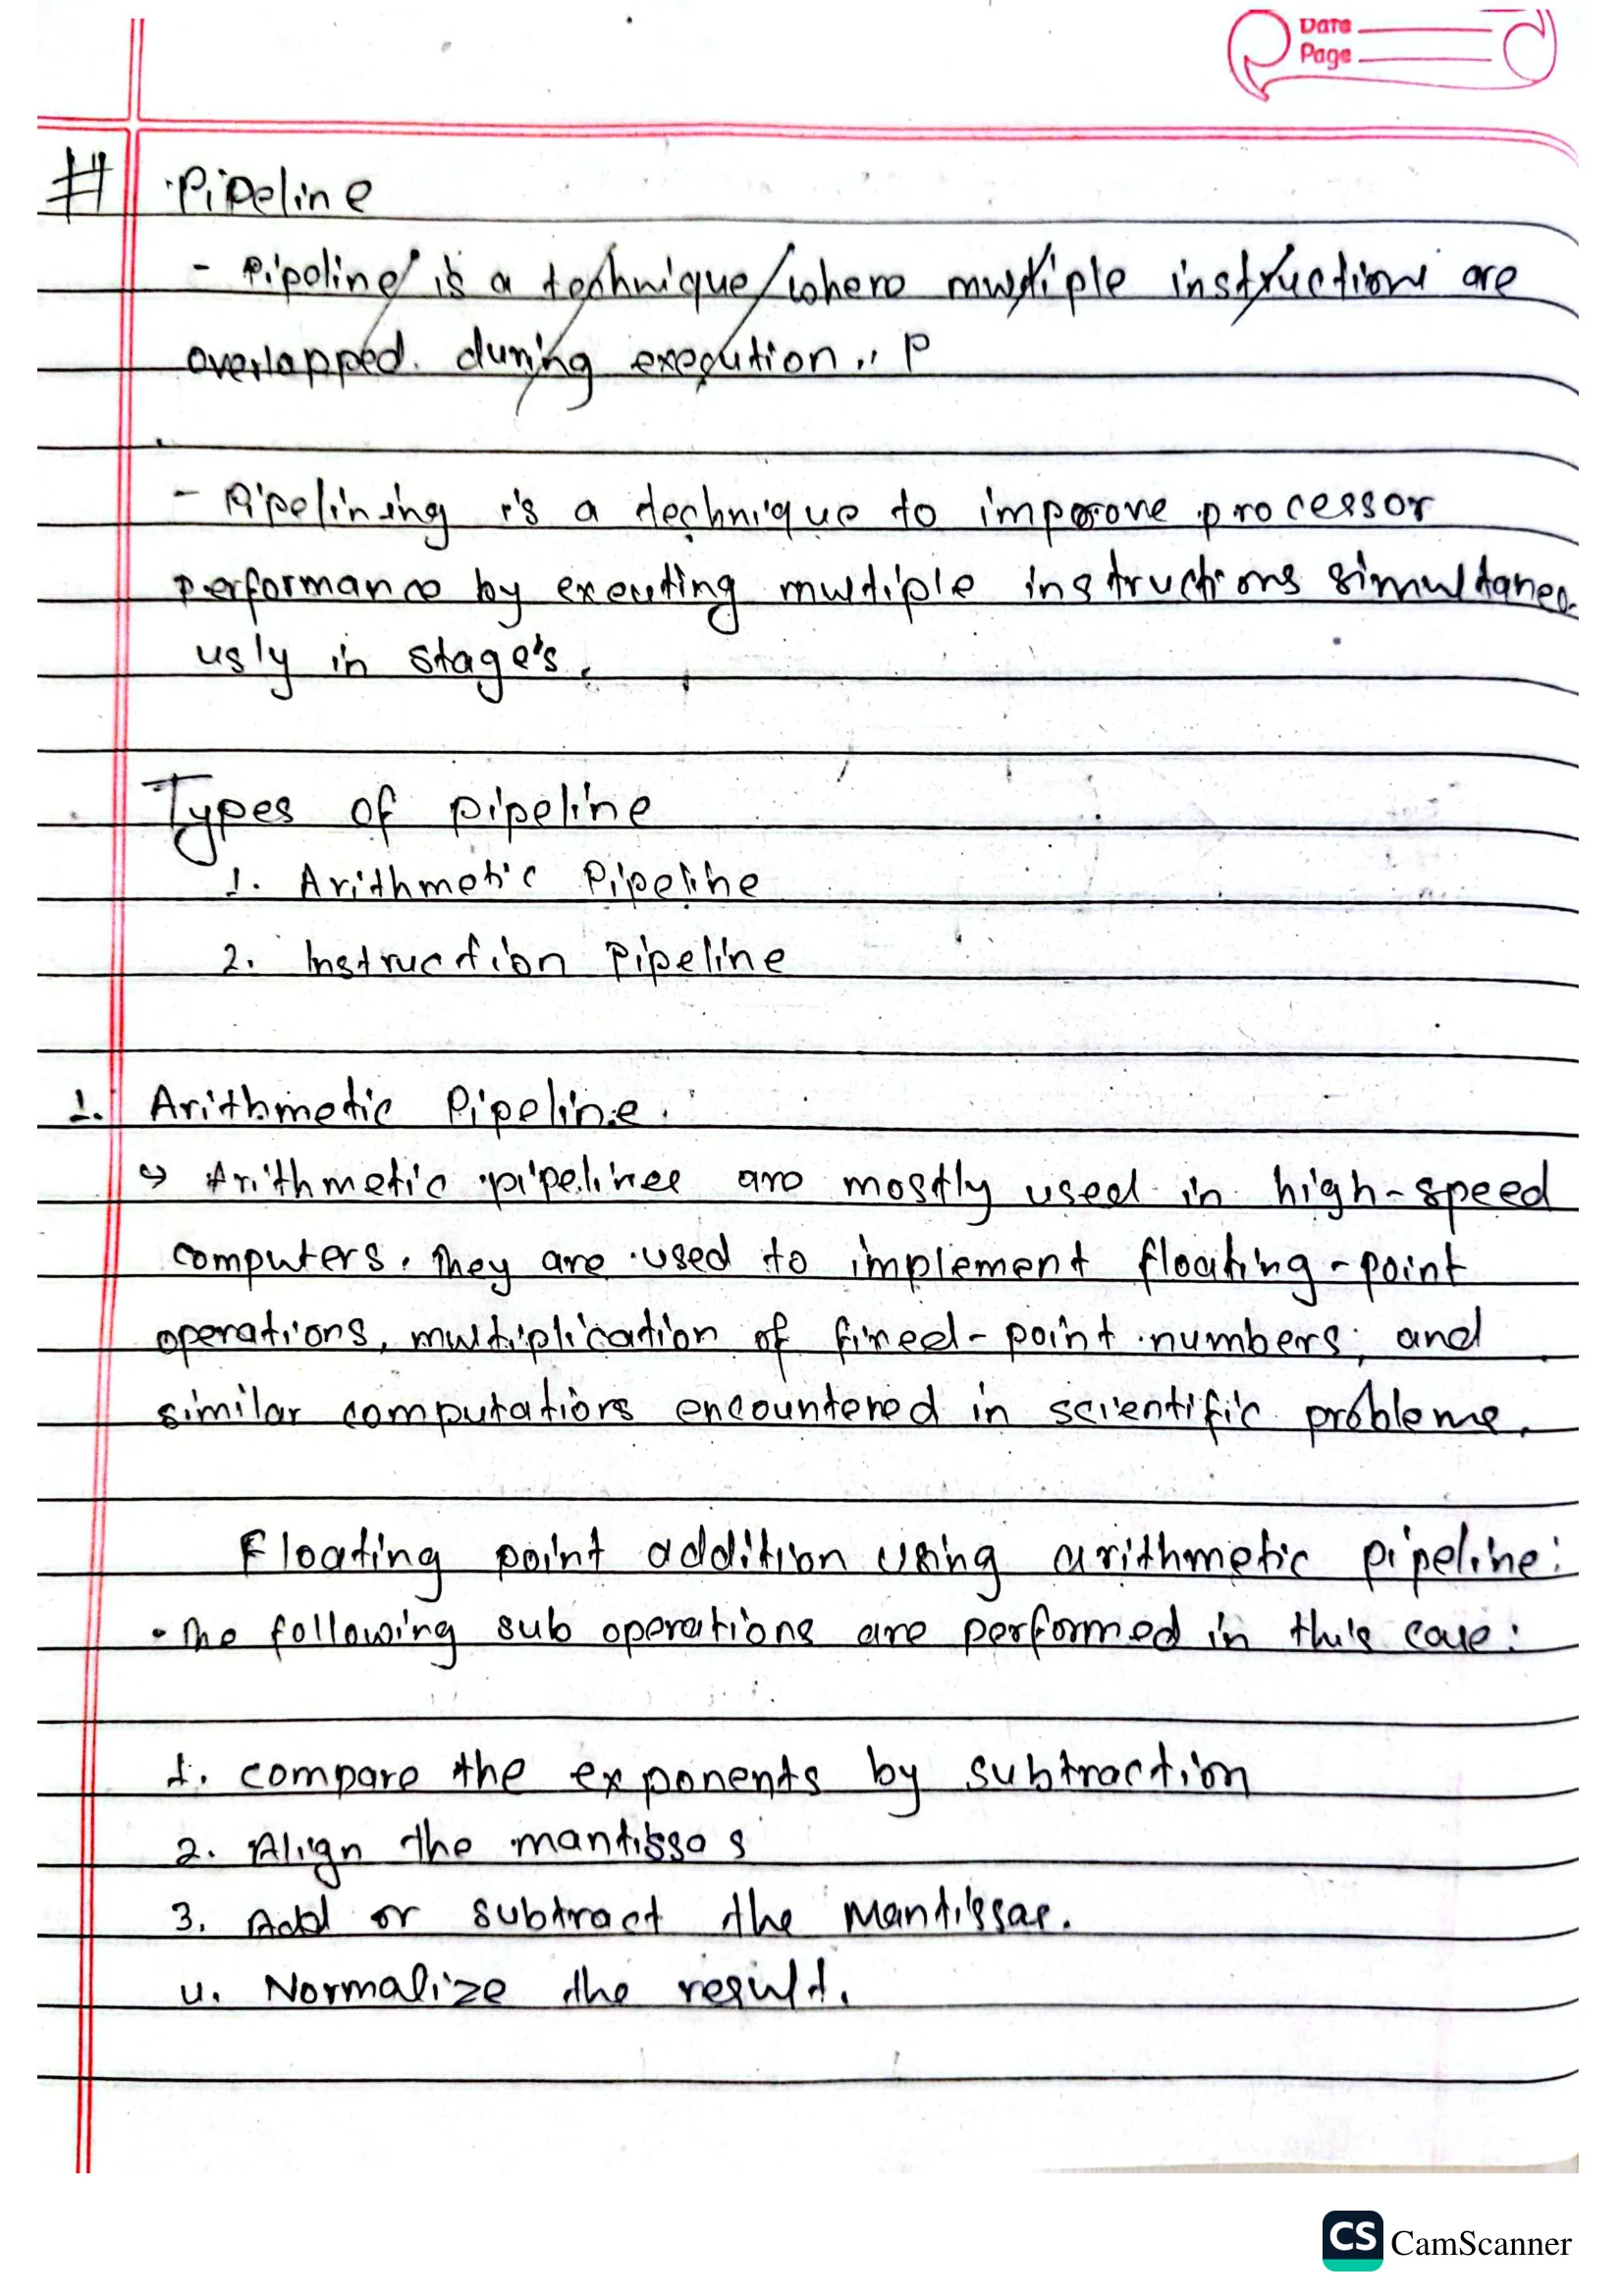 Date
Page
# Pipeline
- Pipeline is a technique where multiple instructions are
overlapped. during execution.. P
- Pipelining is a technique to improve processor
performance by exeuting multiple instructions simultaneo
usly in stage's.
Types of pipeline
1. Arithmetic Pipeline
2. Instruction Pipeline
1. Arithmetic Pipeline.
↪ Arithmetic pipelines are mostly used in high-speed
computers. They are used to implement floating-point
operations, multiplication of fixed-point numbers, and
similar computations encountered in scientific problems.
Floating point addition using arithmetic pipeline:
• The following sub operations are performed in this case:
1. compare the exponents by subtraction
2. Align the mantissas
3. Add or subtract the Mantissas.
4. Normalize the result.
CS CamScanner